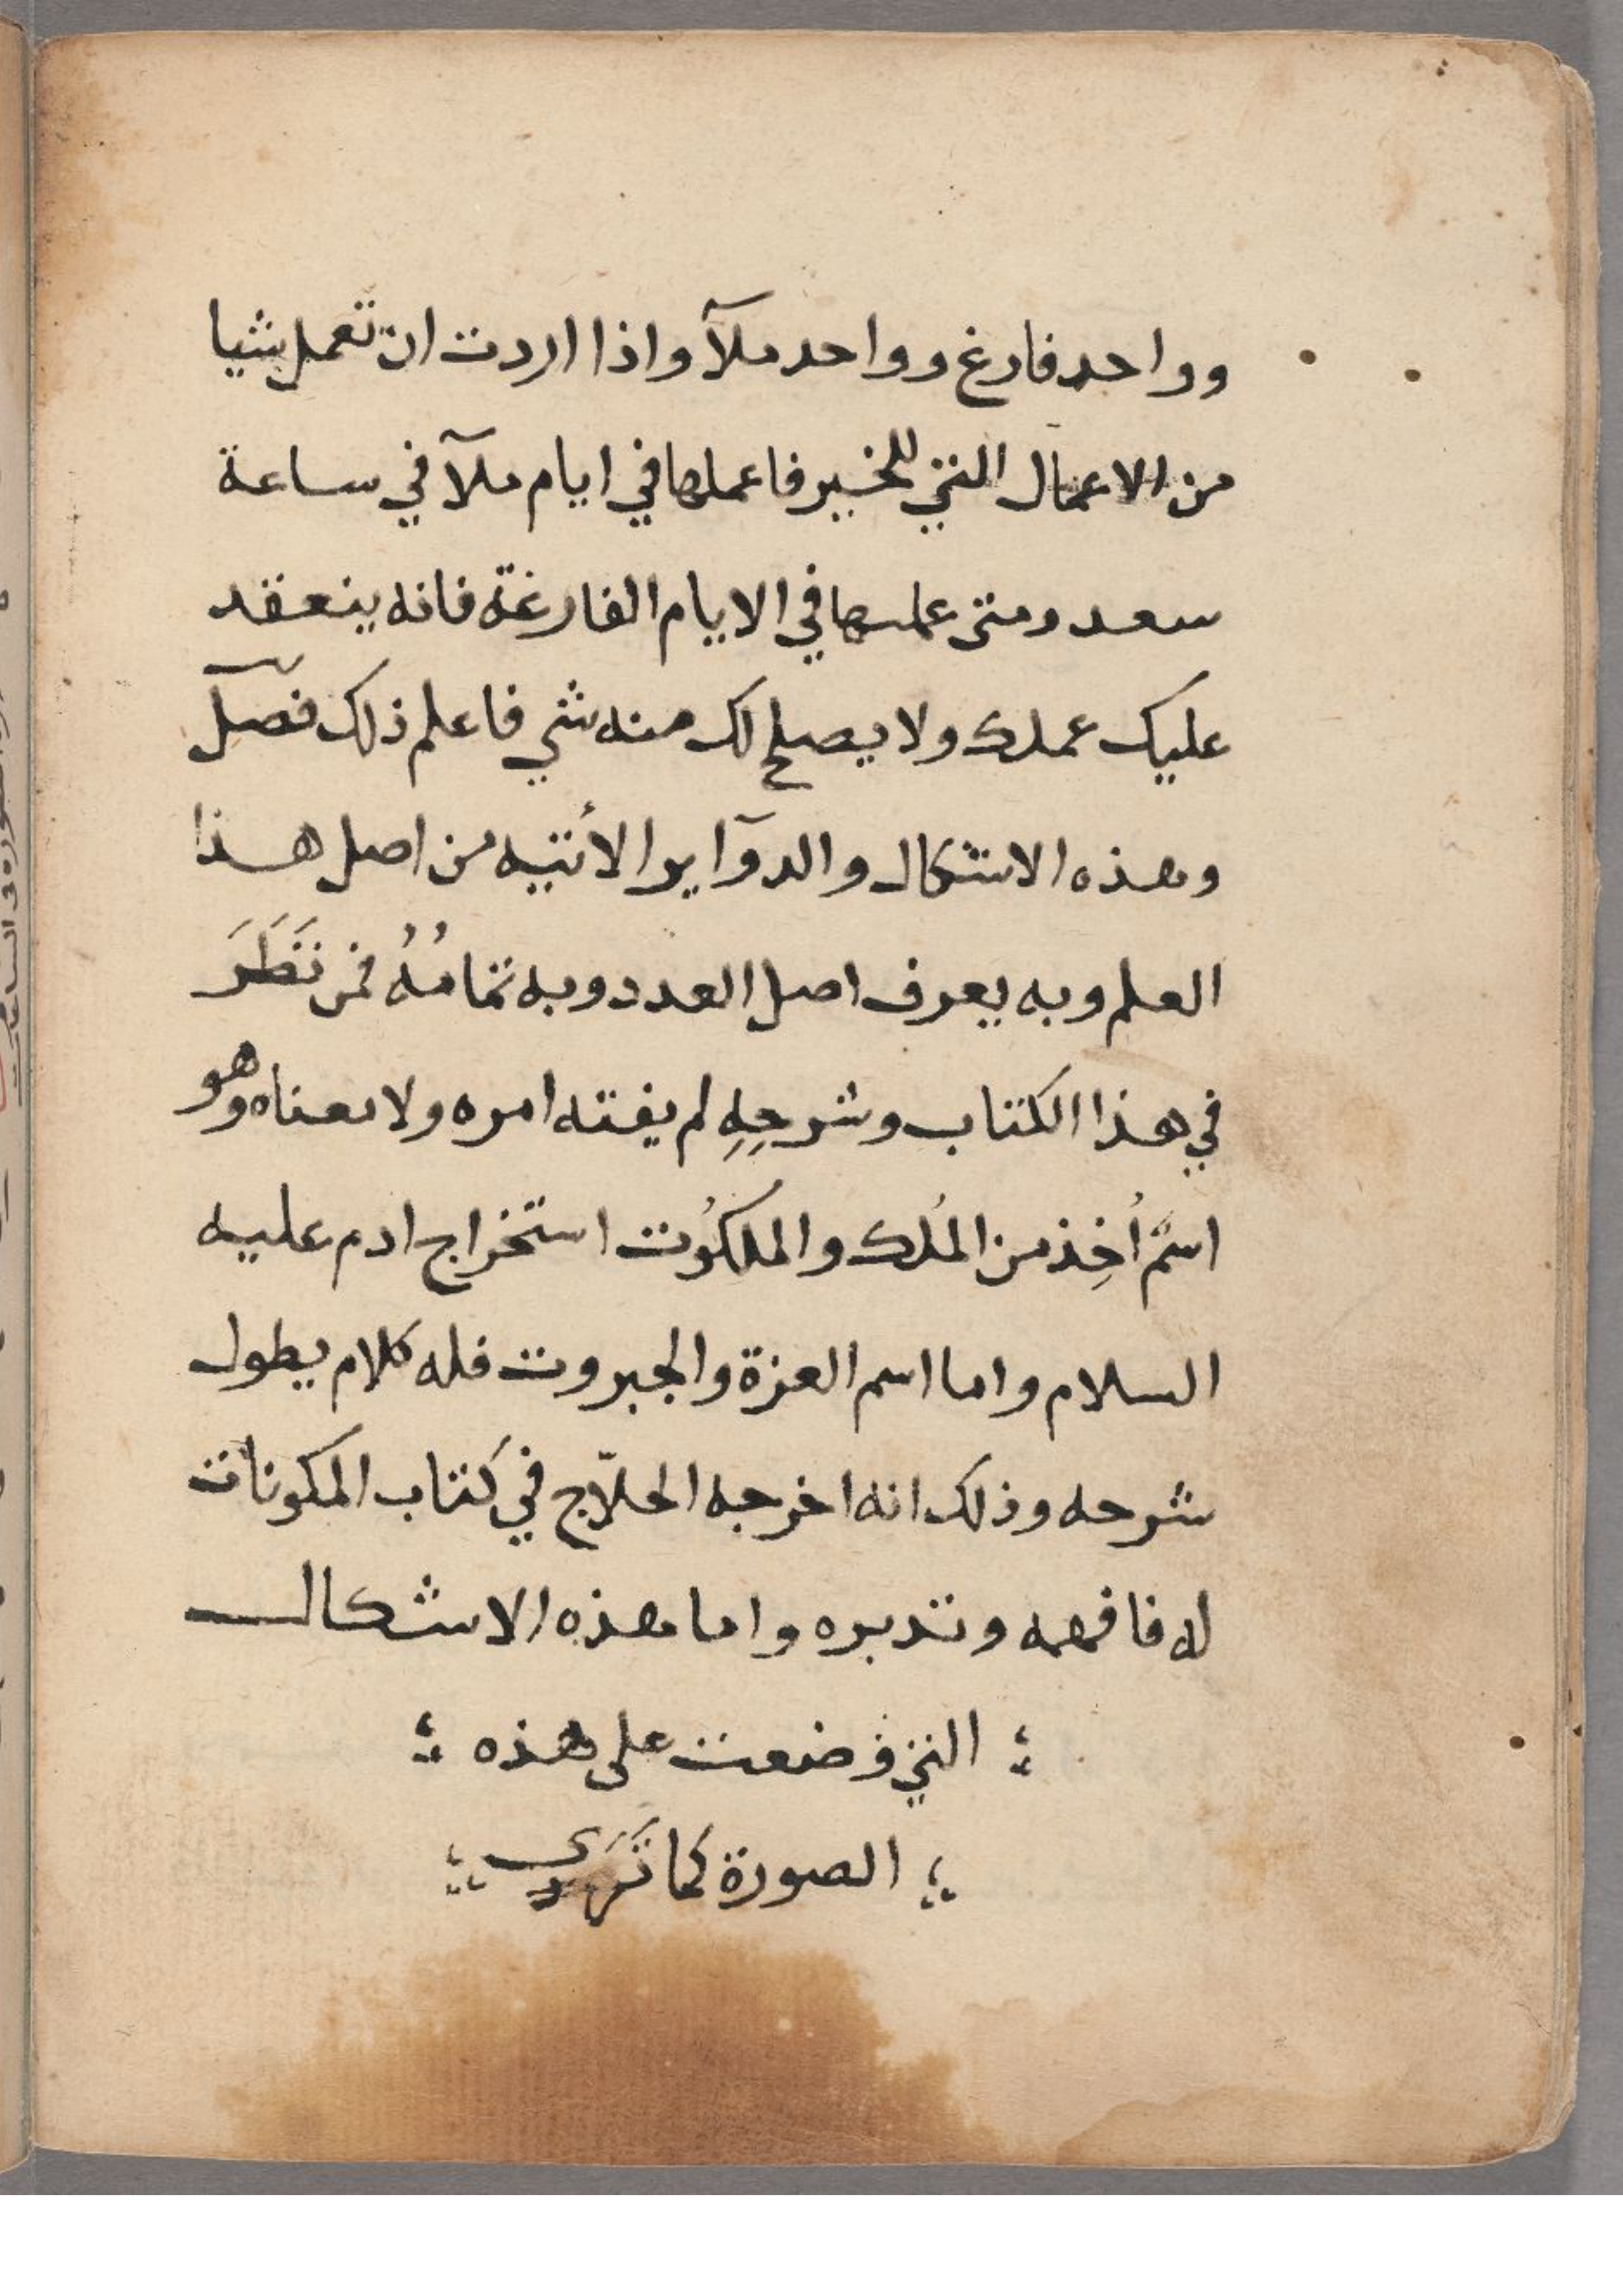 وواحد فارغ وواحد ملآ واذا اردت ان تعمل شيا
من الاعمال التي للخير فاعملها في ايام ملآ في ساعة
سعد ومتى عملتها في الايام الفارغة فانه ينعقد
عليك عملك ولا يصلح لك منه شي فاعلم ذلك فصل
وهذه الاشكال والدوآير الأتيه من اصل هذا
العلم وبه يعرف اصل العدد وبه تمامُهُ فمن نَظَرَ
في هذا الكتاب وشرحِهِ لم يفته امره ولا معناه وهو
اسمٌ اُخِذ من المُلك والملكُوت استخراج ادم عليه
السلام واما اسم العزة والجبروت فله كلام يطول
شرحه وذلك انه اخرجه الحلّاج في كتاب المكونات
له فافهمه وتدبره واما هذه الاشكال
التي وضعت على هذه
الصورة كما تَرَى